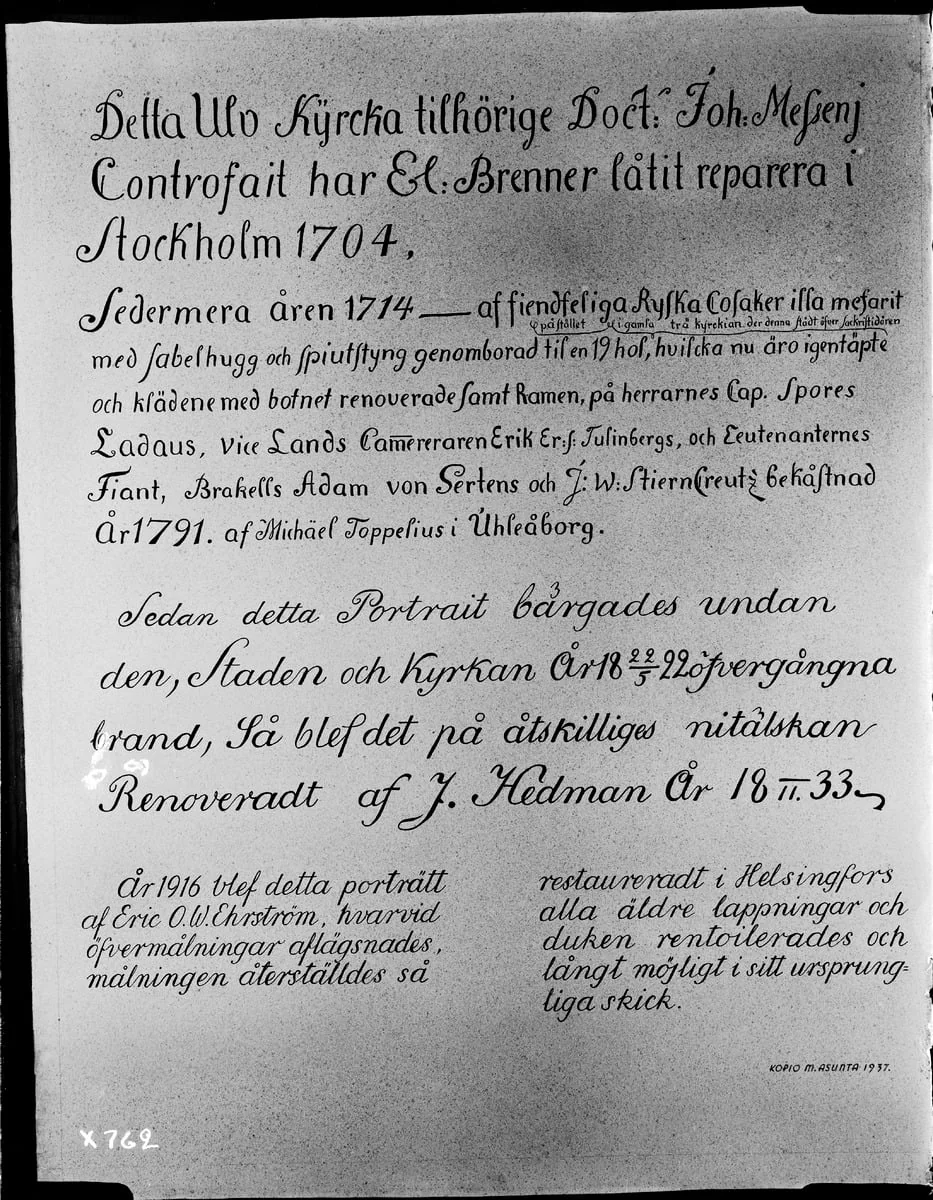 Detta Ulo Kÿrcka tilhörige Doct:r Joh: Meſsenj
Controfait har El: Brenner låtit reparera i
Stockholm 1704,
Sedermera åren 1714 — af fiendteliga Ryſka Coſaker illa mefarit
på ſtället i gamla trä kyrckian der denna ſtådt öfver ſackristidören
med ſabelhugg och ſpiutſtyng genomborad til en 19 hol, hvilcka nu äro igentäpte
och klädene med botnet renoverade ſamt Ramen, på herrarnes Cap. Spores
Ladaus, Vice Lands Camereraren Erik Er:ſ: Tulinbergs, och Leutenanternes
Fiant, Brakells Adam von Sertens och J: W: StiernCreutz bekåſtnad
År 1791. af Michäel Toppelius i Uhleåborg.
Sedan detta Portrait bårgades undan
den, Staden och Kyrkan År 18 22/5 22 öfvergångna
brand, Så blef det på åtskilliges nitälskan
Renoveradt af J. Hedman År 18 II. 33
År 1916 blef detta porträtt
af Eric O.W. Ehrström, hvarvid
öfvermålningar aflägsnades,
målningen återställdes så
restaureradt i Helsingfors
alla äldre lappningar och
duken rentoilerades och
långt möjligt i sitt ursprung=
liga skick.
KOPIO M. ASUNTA 1937.
X 762